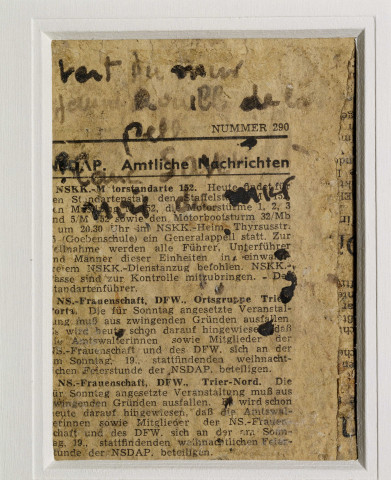 vert du mur
NUMMER 290
NSDAP. Amtliche Nachrichten
NSKK.-M torstandarte 152. Heute findet für
en Standartenstab, den Staffelstu
M 152, die Motorstürme 1, 2, 3
nd 5/M 152 sowie den Motorbootsturm 32/Mb
um 20.30 Uhr im NSKK.-Heim, Thyrsusstr.
(Goebenschule) ein Generalappell statt. Zur
eilnahme werden alle Führer, Unterführer
nd Männer dieser Einheiten in einwand
reiem NSKK.-Dienstanzug befohlen. NSKK.-
ässe sind zur Kontrolle mitzubringen. - De
tandartenführer.
NS.-Frauenschaft, DFW., Ortsgruppe Trier
orts. Die für Sonntag angesetzte Veranstal-
ung muß aus zwingenden Gründen ausfallen.
wird heute schon darauf hingewiesen, daß
ie Amtswalterinnen sowie Mitglieder der
NS.-Frauenschaft und des DFW. sich an der
m Sonntag, 19., stattfindenden weihnacht-
chen Feierstunde der NSDAP. beteiligen.
NS.-Frauenschaft, DFW., Trier-Nord. Die
ür Sonntag angesetzte Veranstaltung muß aus
wingenden Gründen ausfallen. E wird schon
eute darauf hingewiesen, daß die Amtswal-
erinnen sowie Mitglieder der NS.-Frauen-
chaft und des DFW. sich an der Sonn-
ag, 19., stattfindenden weihnachtlichen Feier-
tunde der NSDAP. beteiligen.